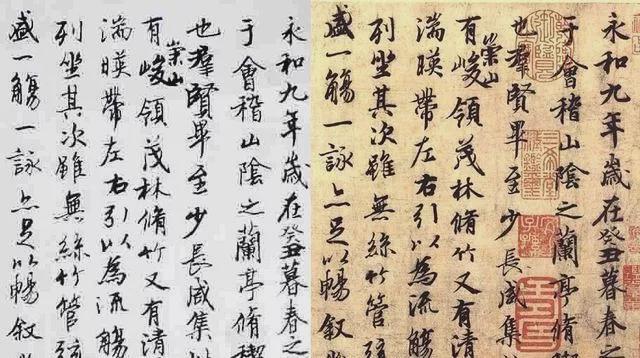 永和九年歲在癸丑暮春之
于會稽山陰之蘭亭脩禊
也羣賢畢至少長咸集
有崇山峻領茂林脩竹又有清
湍暎帶左右引以為流觴
列坐其次雖無絲竹管弦
盛一觴一詠亦足以暢叙
永和九年歲在癸丑暮春之
于會稽山陰之蘭亭脩
也羣賢畢至少長咸集
有崇山峻領茂林脩竹又有清
湍暎帶左右引以為流觴
列坐其次雖無絲竹管弦
盛一觴一詠亦足以暢叙